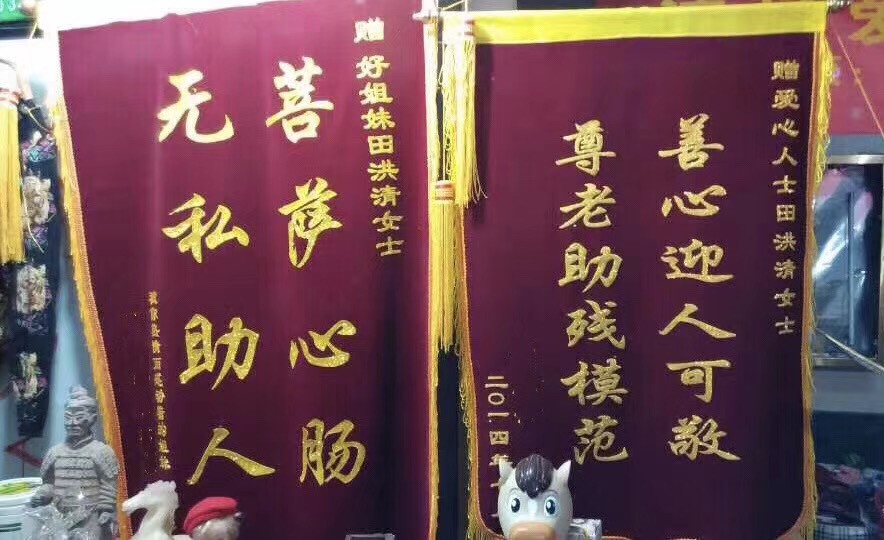 赠 好姐妹田洪清女士
菩萨心肠
无私助人
赠爱心人士田洪清女士
善心迎人可敬
尊老助残模范
二〇一四年